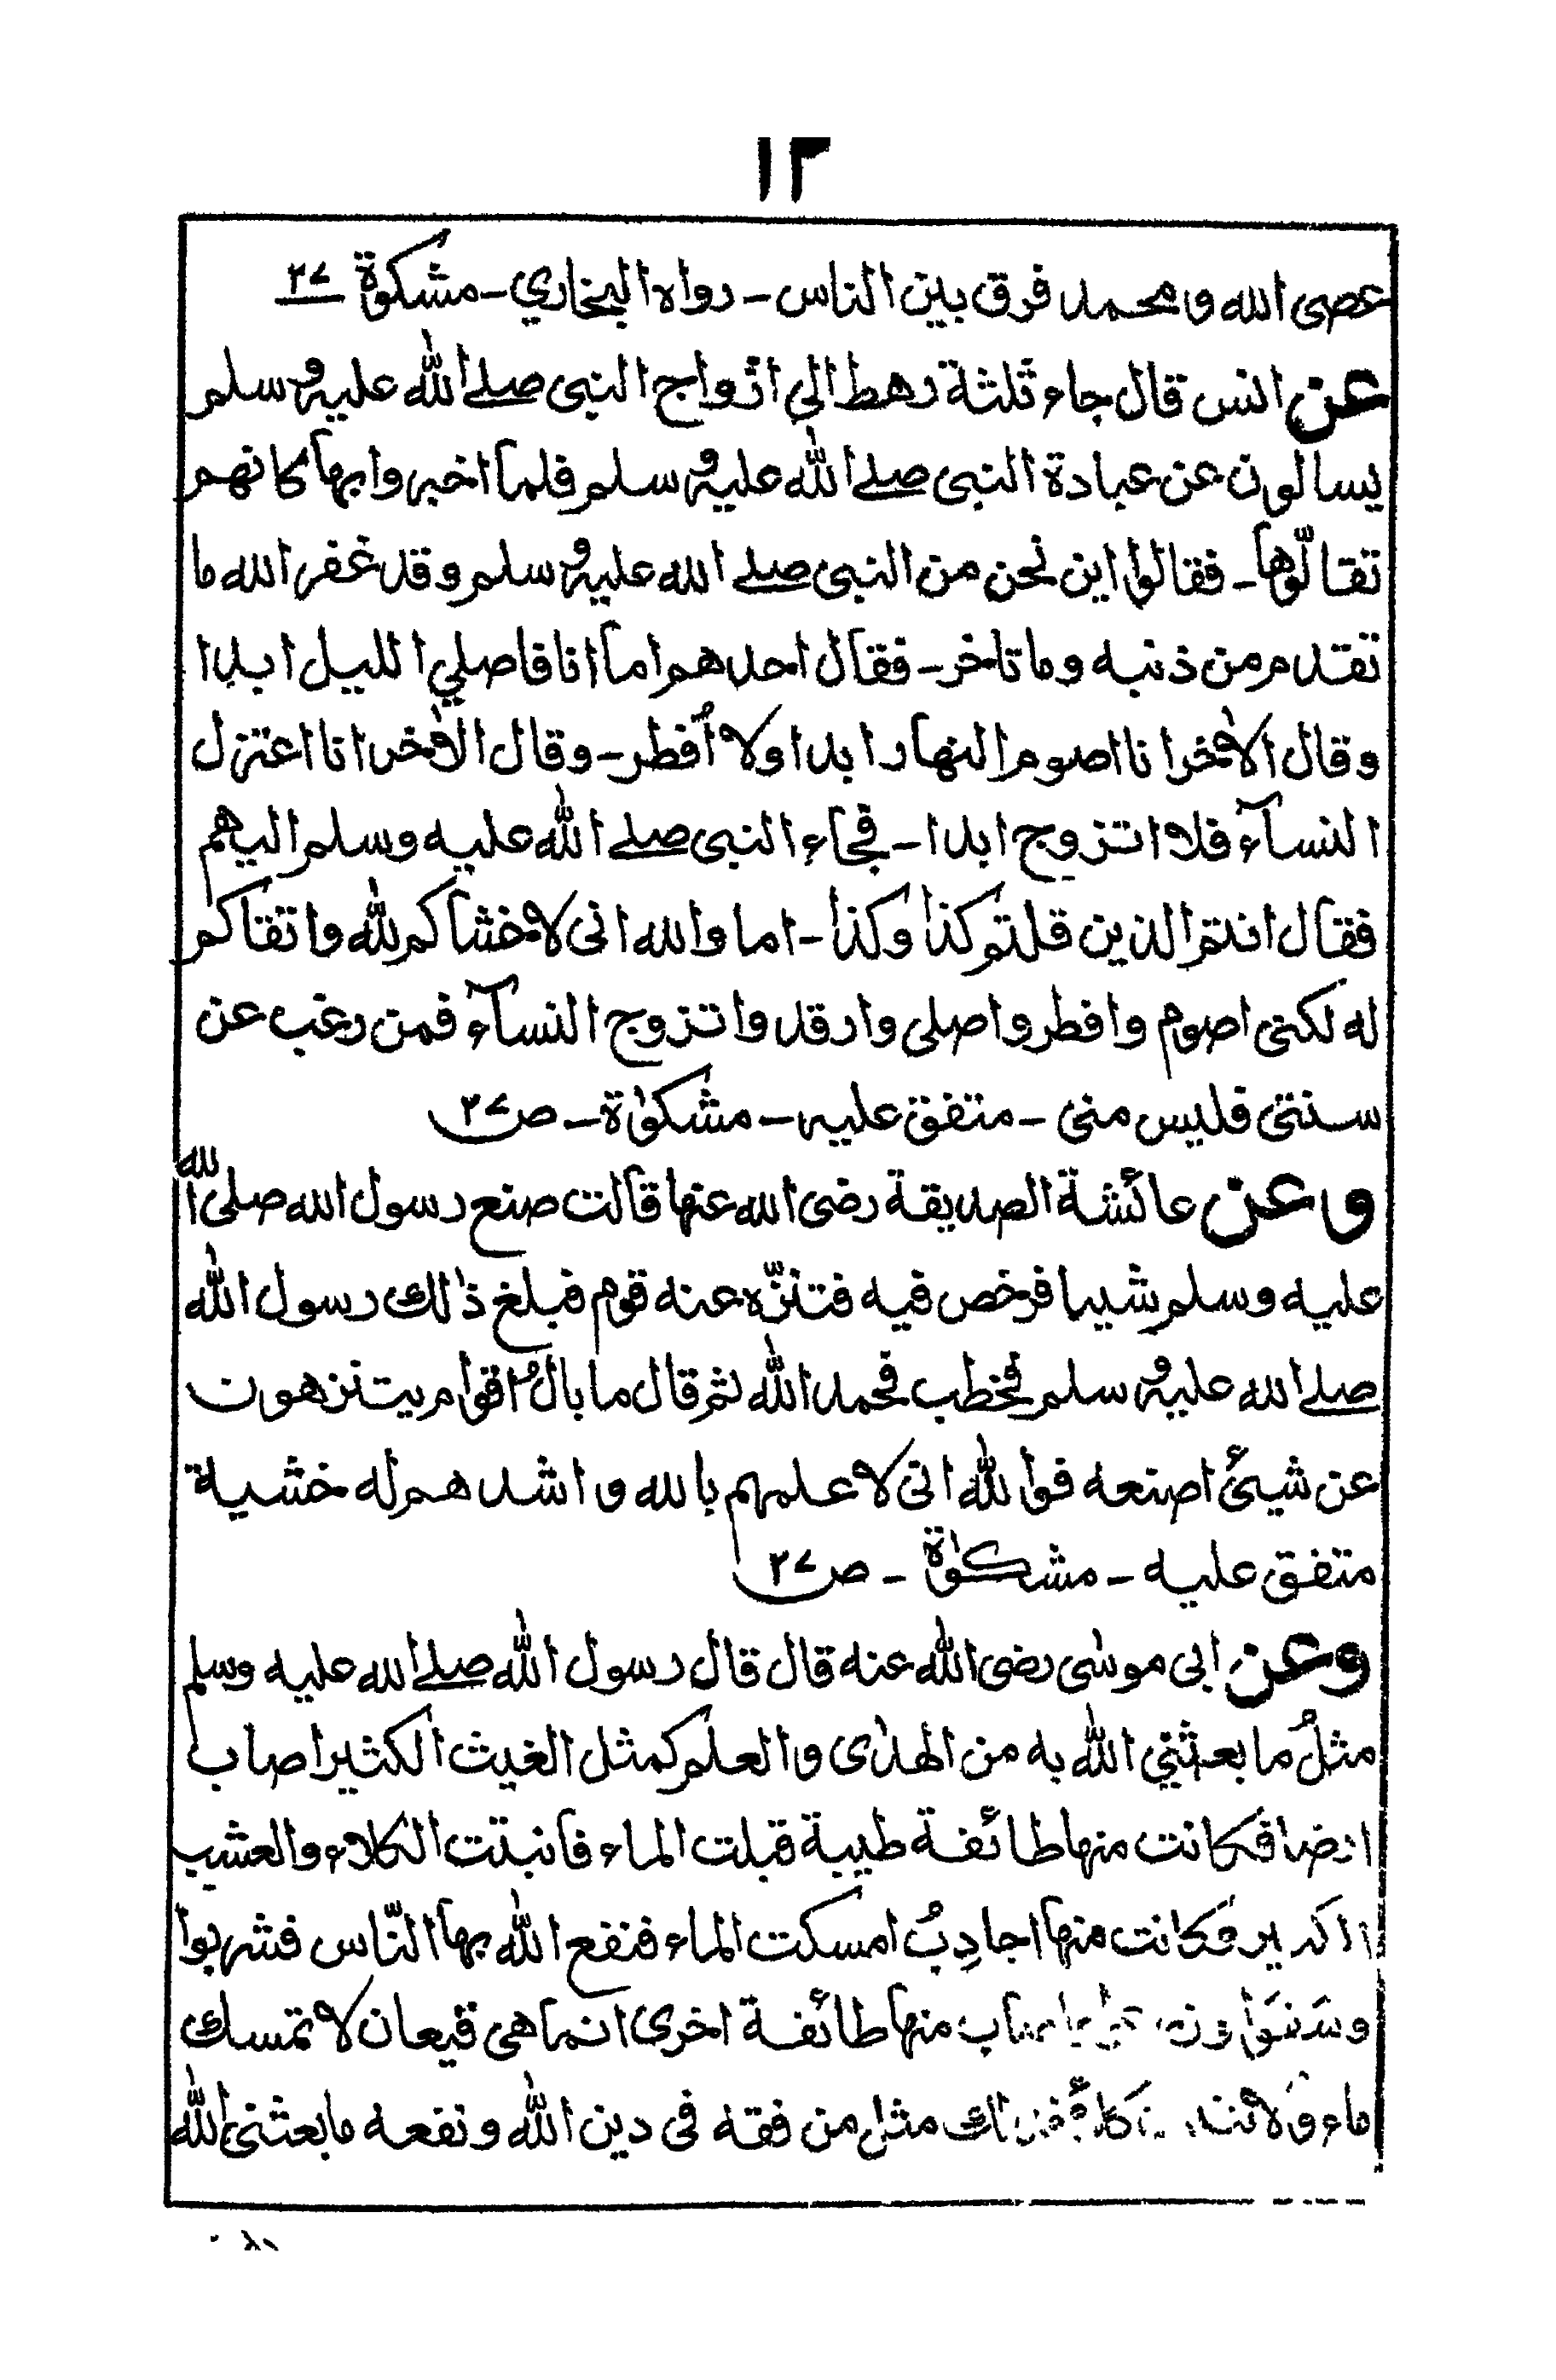 ١٣
عصى الله ومحمد فرق بين الناس - رواه البخاري - مشكوة ٢٧
عن انس قال جاء ثلثة رهط الى ازواج النبى صلے الله عليه وسلم
يسالون عن عبادة النبى صلے الله عليه وسلم فلما اخبروا بها كانهم
تقالّوها - فقالوا اين نحن من النبى صلے الله عليه وسلم وقد غفر الله ما
تقدم من ذنبه وما تاخر - فقال احدهم اما انا فاصلي الليل ابدا
وقال الاٰخر انا اصوم النهار ابدا ولا اُفطر - وقال الاٰخر انا اعتزل
النسآء فلا اتزوج ابدا - فجاء النبى صلے الله عليه وسلم اليهم
فقال انتم الذين قلتم كذا وكذا - اما والله انى لاخشاكم لله واتقاكم
له لكنى اصوم وافطر واصلى وارقد واتزوج النسآء فمن رغب عن
سنتى فليس منى - متفق عليه - مشكوٰة - ص ٢٧
وعن عائشة الصديقة رضى الله عنها قالت صنع رسول الله صلى الله
عليه وسلم شيىا فرخص فيه فتنزّه عنه قوم فبلغ ذٰلك رسول الله
صلے الله عليه وسلم فخطب فحمد الله ثم قال ما بالُ اقوام يتنزهون
عن شيئ اصنعه فوالله انى لاعلمهم بالله واشدهم له خشية
متفق عليه - مشكوٰة - ص ٢٧
وعن ابى موسٰى رضى الله عنه قال قال رسول الله صلے الله عليه وسلم
مثلُ ما بعثني الله به من الهدٰى والعلم كمثل الغيث الكثير اصاب
ارضا فكانت منها طائفة طيبة قبلت الماء فانبتت الكلاء والعشب
وكانت منها اجادِبُ امسكت الماء فنفع الله بها النّاس فشربوا
وسَقَوا منها طائفة اخرى انما هى قيعان لا تمسك
ماء ولا مثل من فقه فى دين الله ونفعه ما بعثنى الله